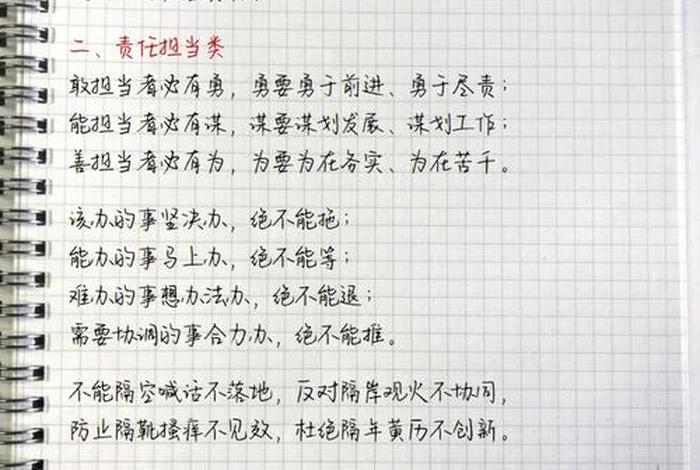 二、责任担当类
敢担当者必有勇，勇要勇于前进、勇于尽责；
能担当者必有谋，谋要谋划发展、谋划工作；
善担当者必有为，为要为在务实、为在苦干。
该办的事坚决办，绝不能拖；
能办的事马上办，绝不能等；
难办的事想办法办，绝不能退；
需要协调的事合力办，绝不能推。
不能隔空喊话不落地，反对隔岸观火不协同，
防止隔靴搔痒不见效，杜绝隔年黄历不创新。